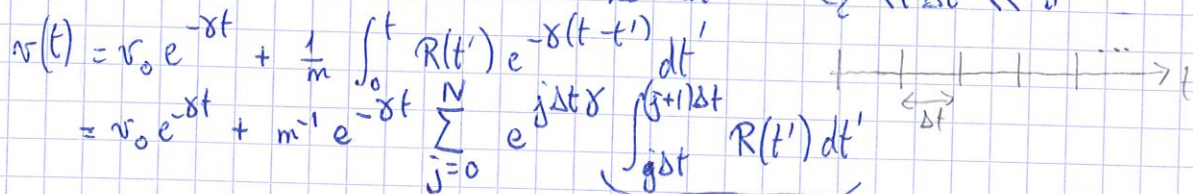 v(t) = v₀ e^{-γt} + 1/m ∫₀^t R(t') e^{-γ(t-t')} dt'
= v₀ e^{-γt} + m^{-1} e^{-γt} ∑_{j=0}^{N} e^{jΔtγ} ∫_{jΔt}^{(j+1)Δt} R(t') dt'
... t
Δt